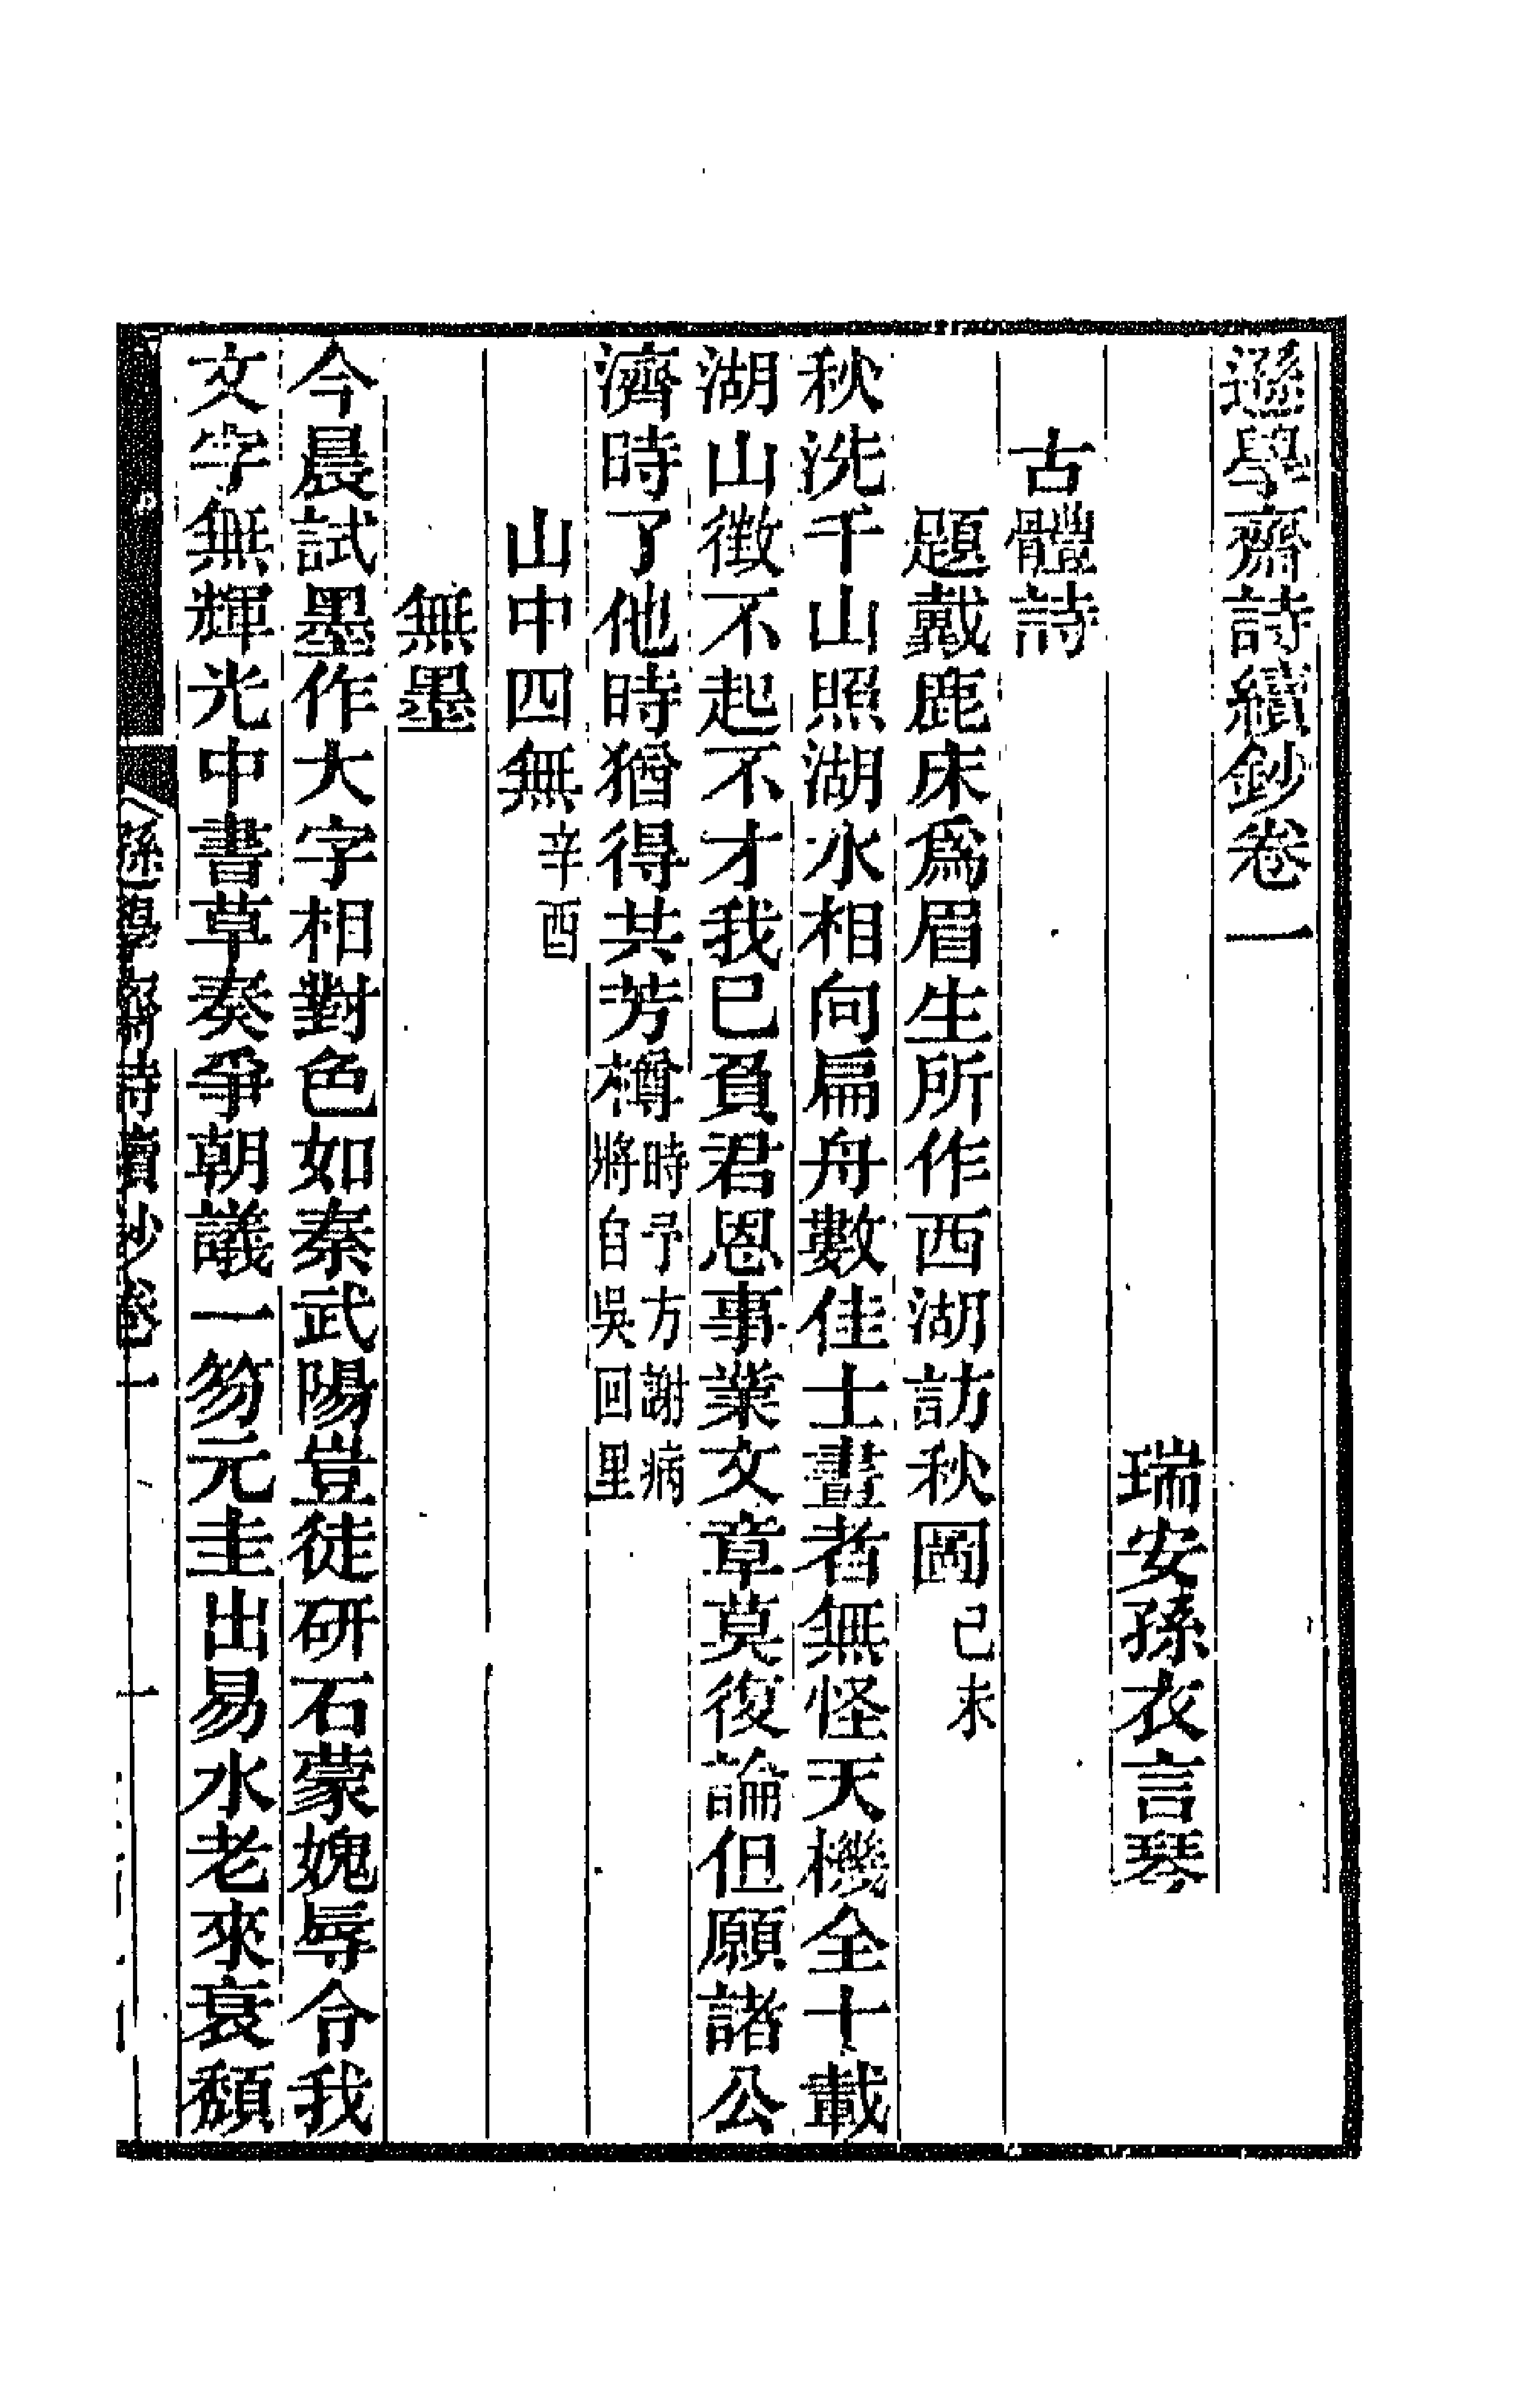 遜學齋詩續鈔卷一
瑞安孫衣言琴
古體詩
題戴鹿床爲眉生所作西湖訪秋圖己未
秋洗千山照湖水相向扁舟數佳士畫者無怪天機全十載
湖山徵不起不才我已負君恩事業文章莫復論但願諸公
濟時了他時猶得共芳樽時予方謝病將自吳回里
山中四無辛酉
無墨
今晨試墨作大字相對色如秦武陽豈徒研石蒙媿辱令我
文字無輝光中書草奏爭朝議一笏元圭出易水老來衰頹
遜學齋詩續鈔卷一
一